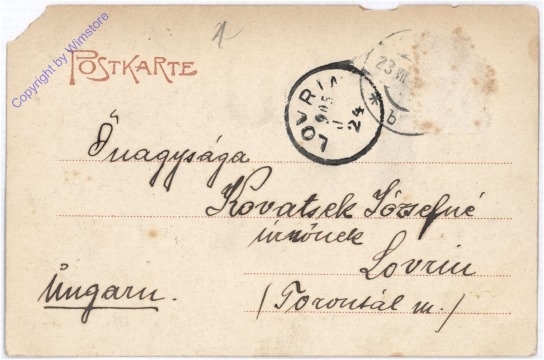 Copyright by Wimstore
1
POSTKARTE
LOVRIN
905
24
23 VII
Őnagysága
Kovatsek Józsefné
irnőnek
Lovrin
Ungarn.
/Torontál m./